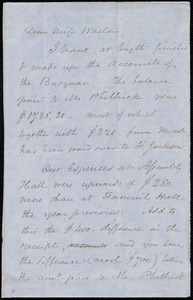 Dear Miss Weston,
I have at length finished
& made up the Accounts of
the Bazaar. The balance
paid to Mr Philbrick was
$1728,30. Most of which
together with $320 from
has been paid over to F. Jackson
Our Expenses at Assembly
Hall were upwards of $280
more than at Faneuil Hall
the year previous. Add to
this the $400. difference in the
receipts, and you have
the difference nearly $700. between
the amt paid to Mr Philbrick